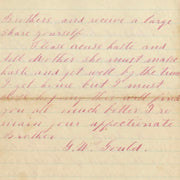 Brothers, and receive a large
share yourself.
Please excuse haste and
tell Mother she must make
haste and get well by the time
I get home but I must
close hoping this will find
you all much better I re
main your affectionate
Brother
G. W. Gould.